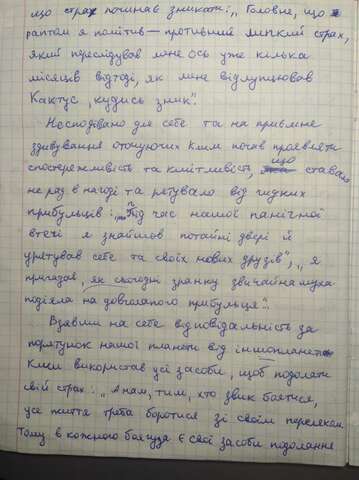 що страх починав зникати: „Головне, що я
раптом я помітив — противний липкий страх,
який переслідував мене ось уже кілька
місяців відтоді, як мене відлупцював
Кактус, кудись зник".
Несподівано для себе та на приємне
здивування оточуючих Клим почав проявляти
спостережливість та кмітливість, що ставало
не раз в нагоді та рятувало від гидких
прибульців: „Під час нашої панічної
втечі я знайшов потайні двері й
урятував себе та своїх нових друзів", „я
пригадав, як сьогодні зранку звичайна муха
подіяла на довголапого прибульця".
Взявши на себе відповідальність за
порятунок нашої планети від іншопланетян
Клим використав усі засоби, щоб подолати
свій страх: „А нам, тим, хто звик боятися,
усе життя треба боротися зі своїм переляком.
Тому в кожного боягуза є свої засоби подолання